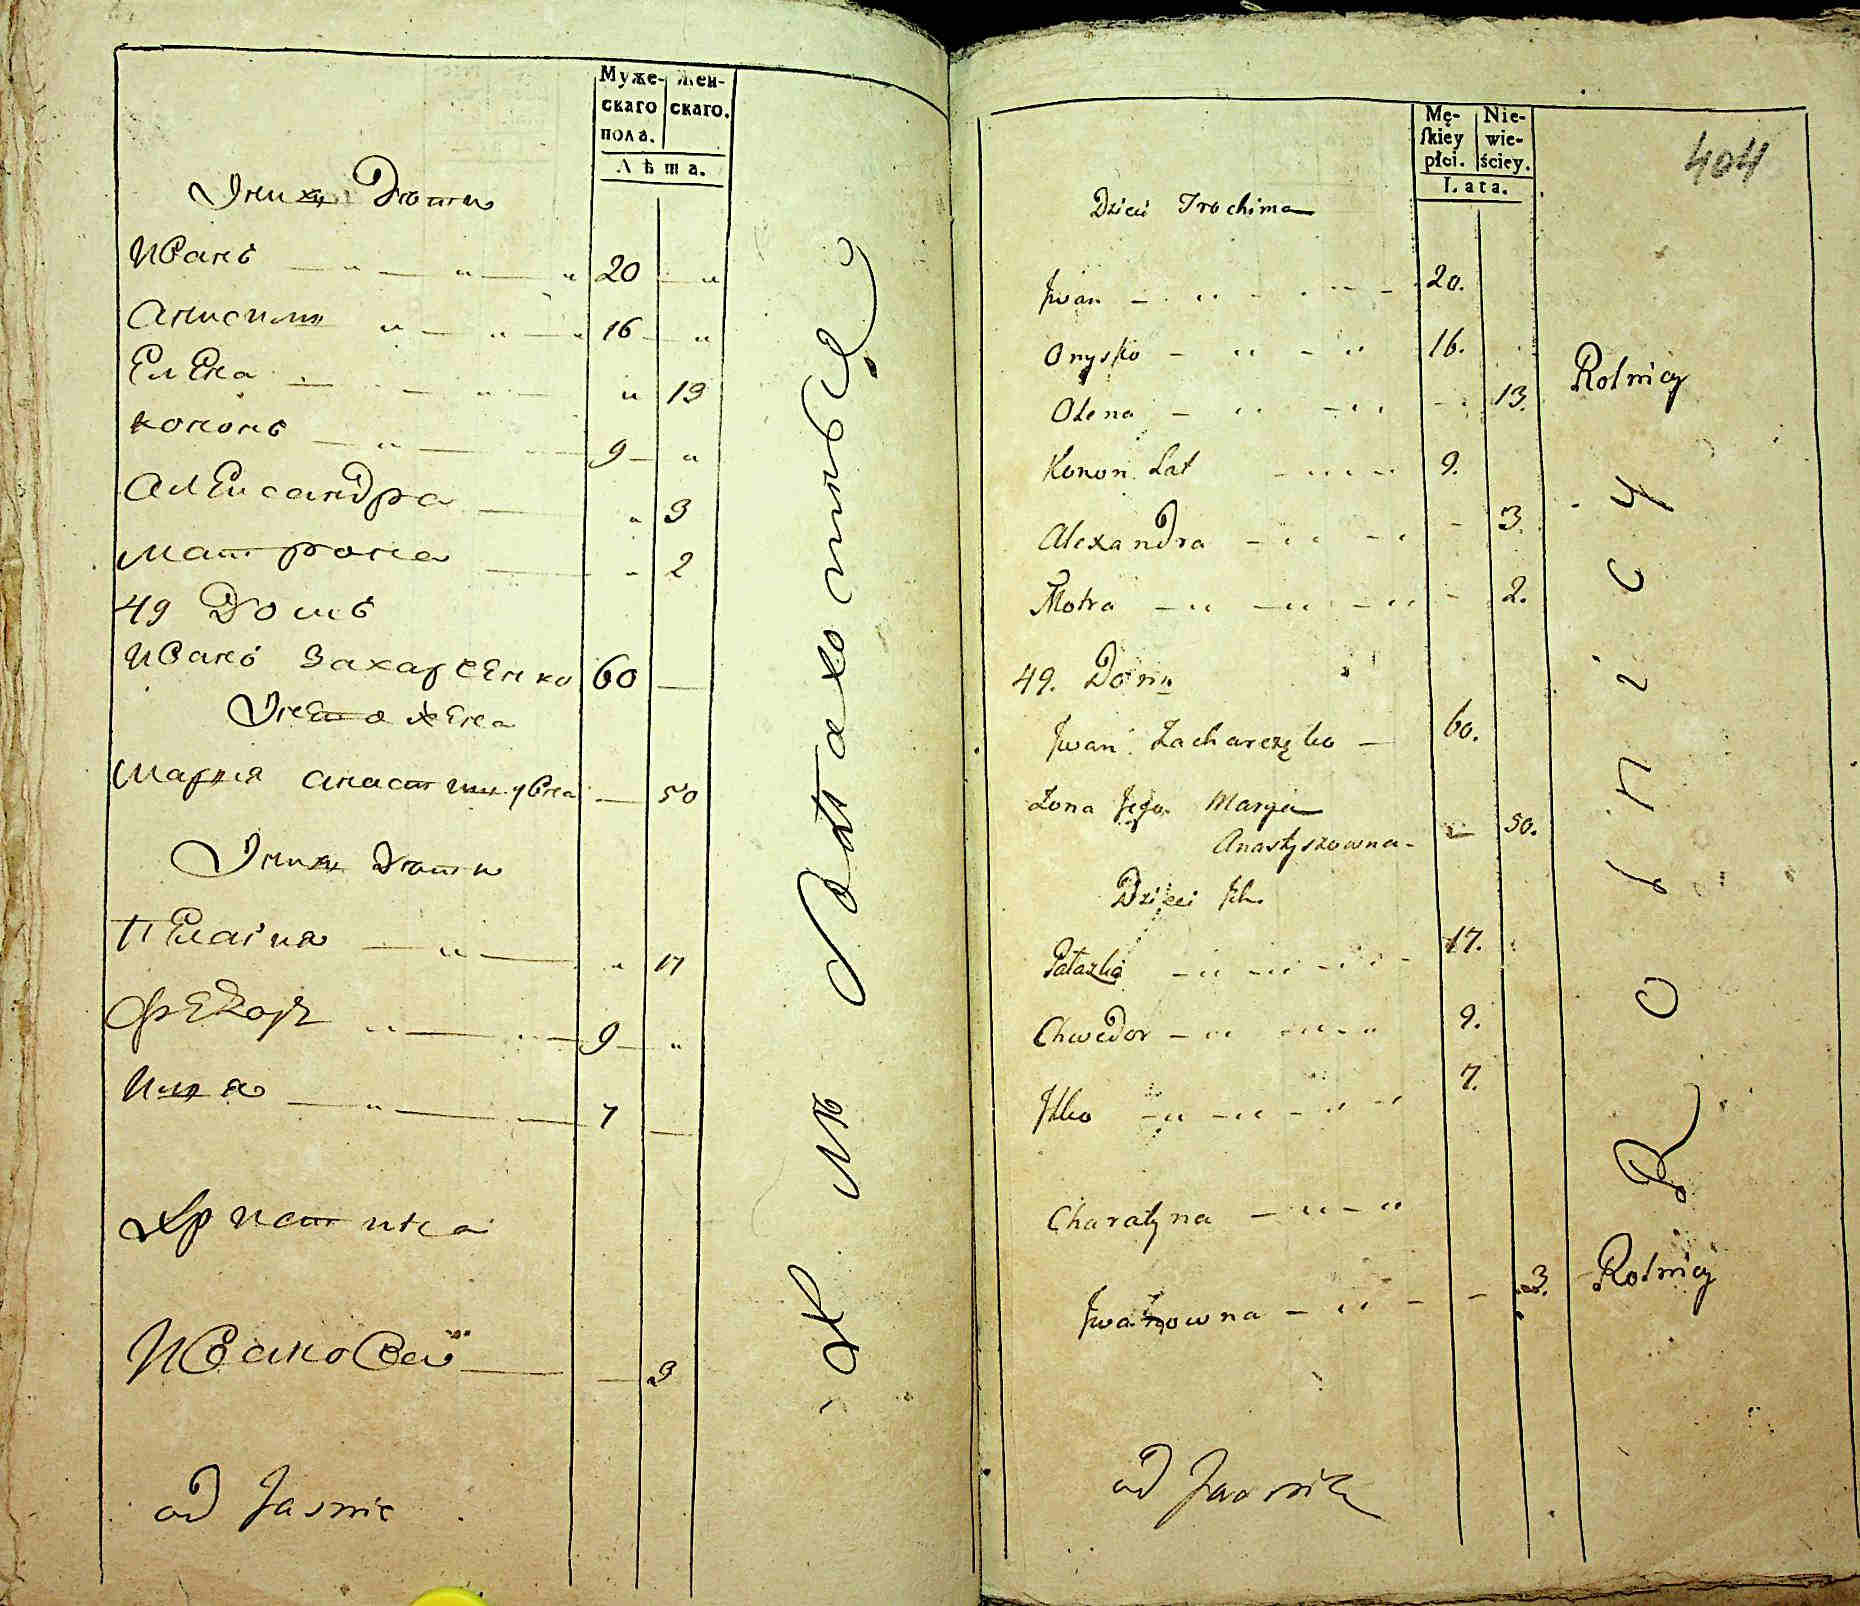 Муже-
скаго
пола.
Жен-
скаго.
Лѣта.
Ихъ Дѣти
Иванъ 20
Анисимъ 16
Елена 13
Кононъ 9
Александра 3
Матрона 2
49 Домъ
Иванъ Захарченко 60
Его жена
Марія 50
Ихъ Дѣти
Пелагія 17
Федоръ 9
Илія 7
Христина
Иванова 3
od Jasnie
404
Mę-
skiey
płci.
Nie-
wie-
ściey.
Lata.
Dzieci Trochima
Jwan 20.
Onysko 16.
Olena 13.
Rolnicy
Konon Lat 9.
Alexandra 3.
Motra 2.
49. Dom
Jwan Zacharczęko 60.
Żona Jego Marya
Anastyszowna 50.
Dzieci Jch
Pałazka 17.
Chwedor 9.
Jlko 7.
Charatyna
Jwanowna 3.
Rolnicy
od
Rolnicy